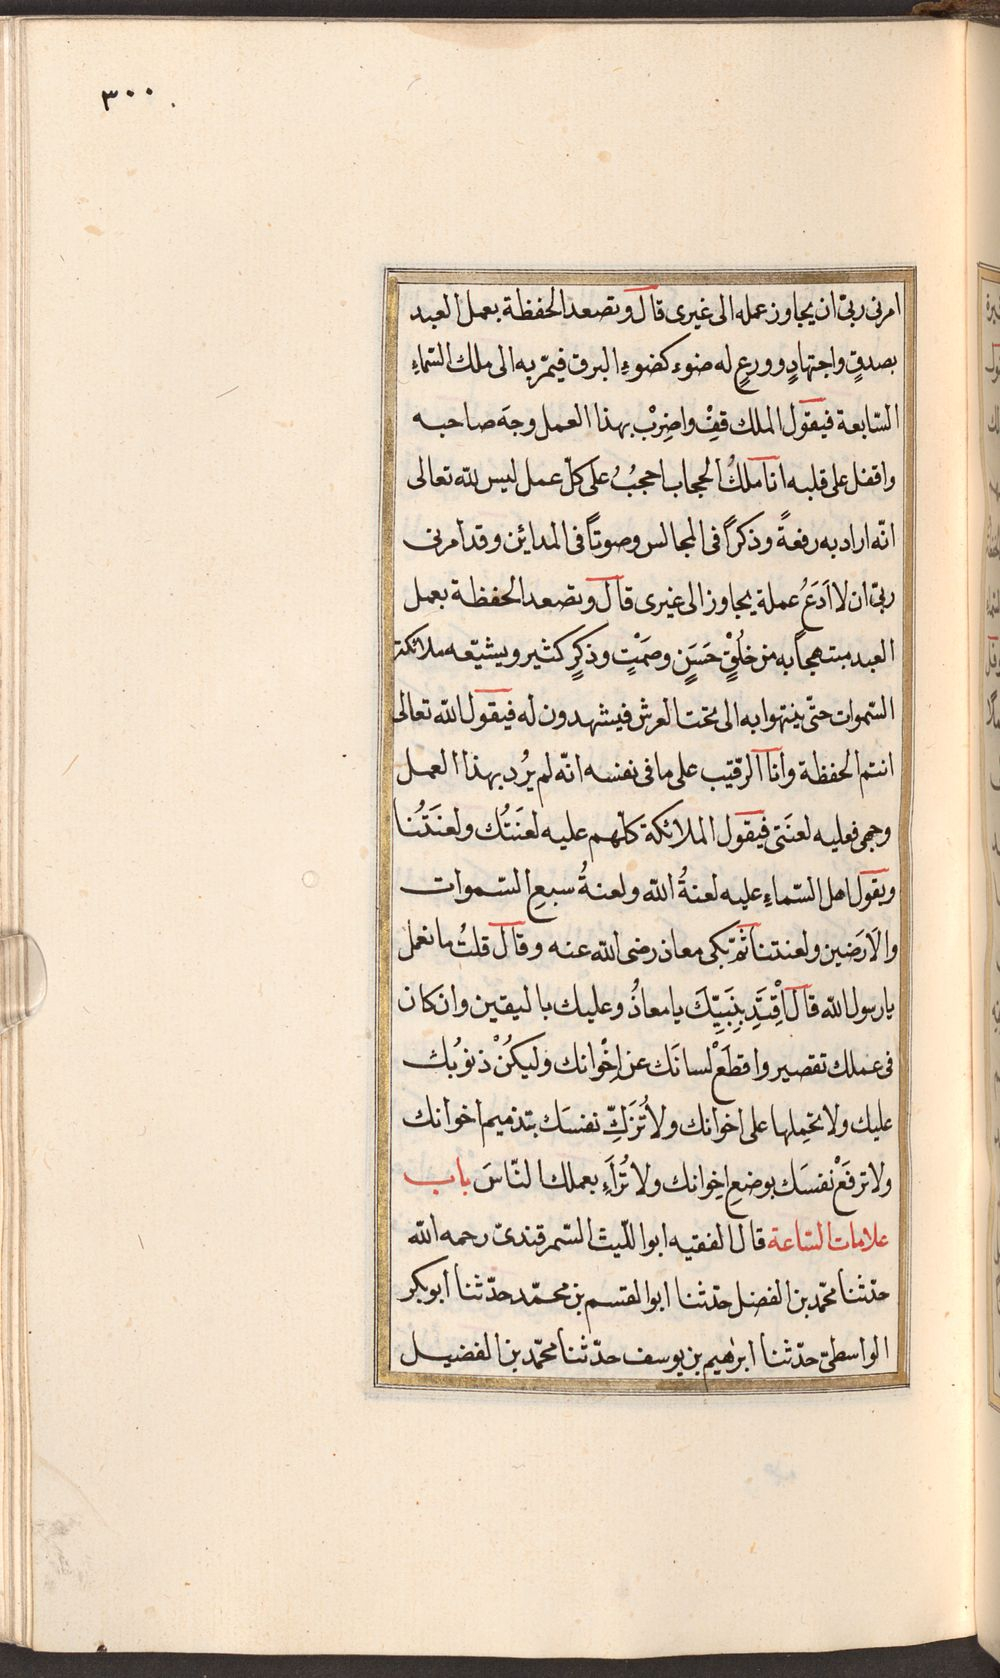 ٣٠٠
امرنى ربىّ ان يجاوز عمله الى غيرى قال وتصعد الحفظة بعمل العبد
بصدقٍ واجتهادٍ وورعٍ له ضوء كضوءِ البرق فيمّر به الى ملك السّماءِ
السّابعة فيقول الملك قِفْ واضِربْ بهذا العمل وجهَ صاحبه
واقفل على قلبه انا ملكُ الحجاب احجبُ على كلّ عمل ليس لله تعالى
انّه اراد به رفعةً وذكراً فى المجالس وصوتاً فى المدائن وقد امرنى
ربىّ ان لا اَدَعُ عملة يجاوز الى غيرى قال وتصعد الحفظة بعمل
العبد مبتهجاً به من خلُقٍ حَسَنٍ وصَمْتٍ وذكرٍ كثير ويشيّعه ملائكة
السّموات حتّى ينتهوا به الى تحت العرش فيشهدون له فيقول الله تعالى
انتم الحفظة وانا الرّقيب على ما فى نفسه انّه لم يرُد بهذا العمل
وجهى فعليه لعنَتى فيقول الملائكة كلّهم عليه لعنَتُك ولعنَتُنا
ويقول اهل السّماءِ عليه لعنةُ الله ولعنةُ سبعِ السّموات
والاَرَضين ولعنتنا ثمّ بكى معاذ رضى الله عنه وقال قلتُ ما نعمل
يا رسول الله قال اقِتَدِ بِنَبيِّكَ يا معاذُ وعليك باليقين وان كان
فى عملك تقصير واقطَعْ لسانَك عن اِخْوانك وليكُنْ ذنوبُك
عليك ولا تحَمِلها على اخوانك ولا تُزَكِّ نفسَك بتذميم اخوانك
ولا ترفَعْ نفسَك بوضعِ اِخوانك ولا تُرَاءِ بعملك النّاسَ باب
علامات السّاعة قال الفقيه ابو اللّيث السّمرقندىّ رحمه الله
حدّثنا محّمد بن الفضل حدّثنا ابو القسم بن محمّد حدّثنا ابو بكر
الواسطىّ حدّثنا ابرهيم بن يوسف حدّثنا محّمد بن الفضيل